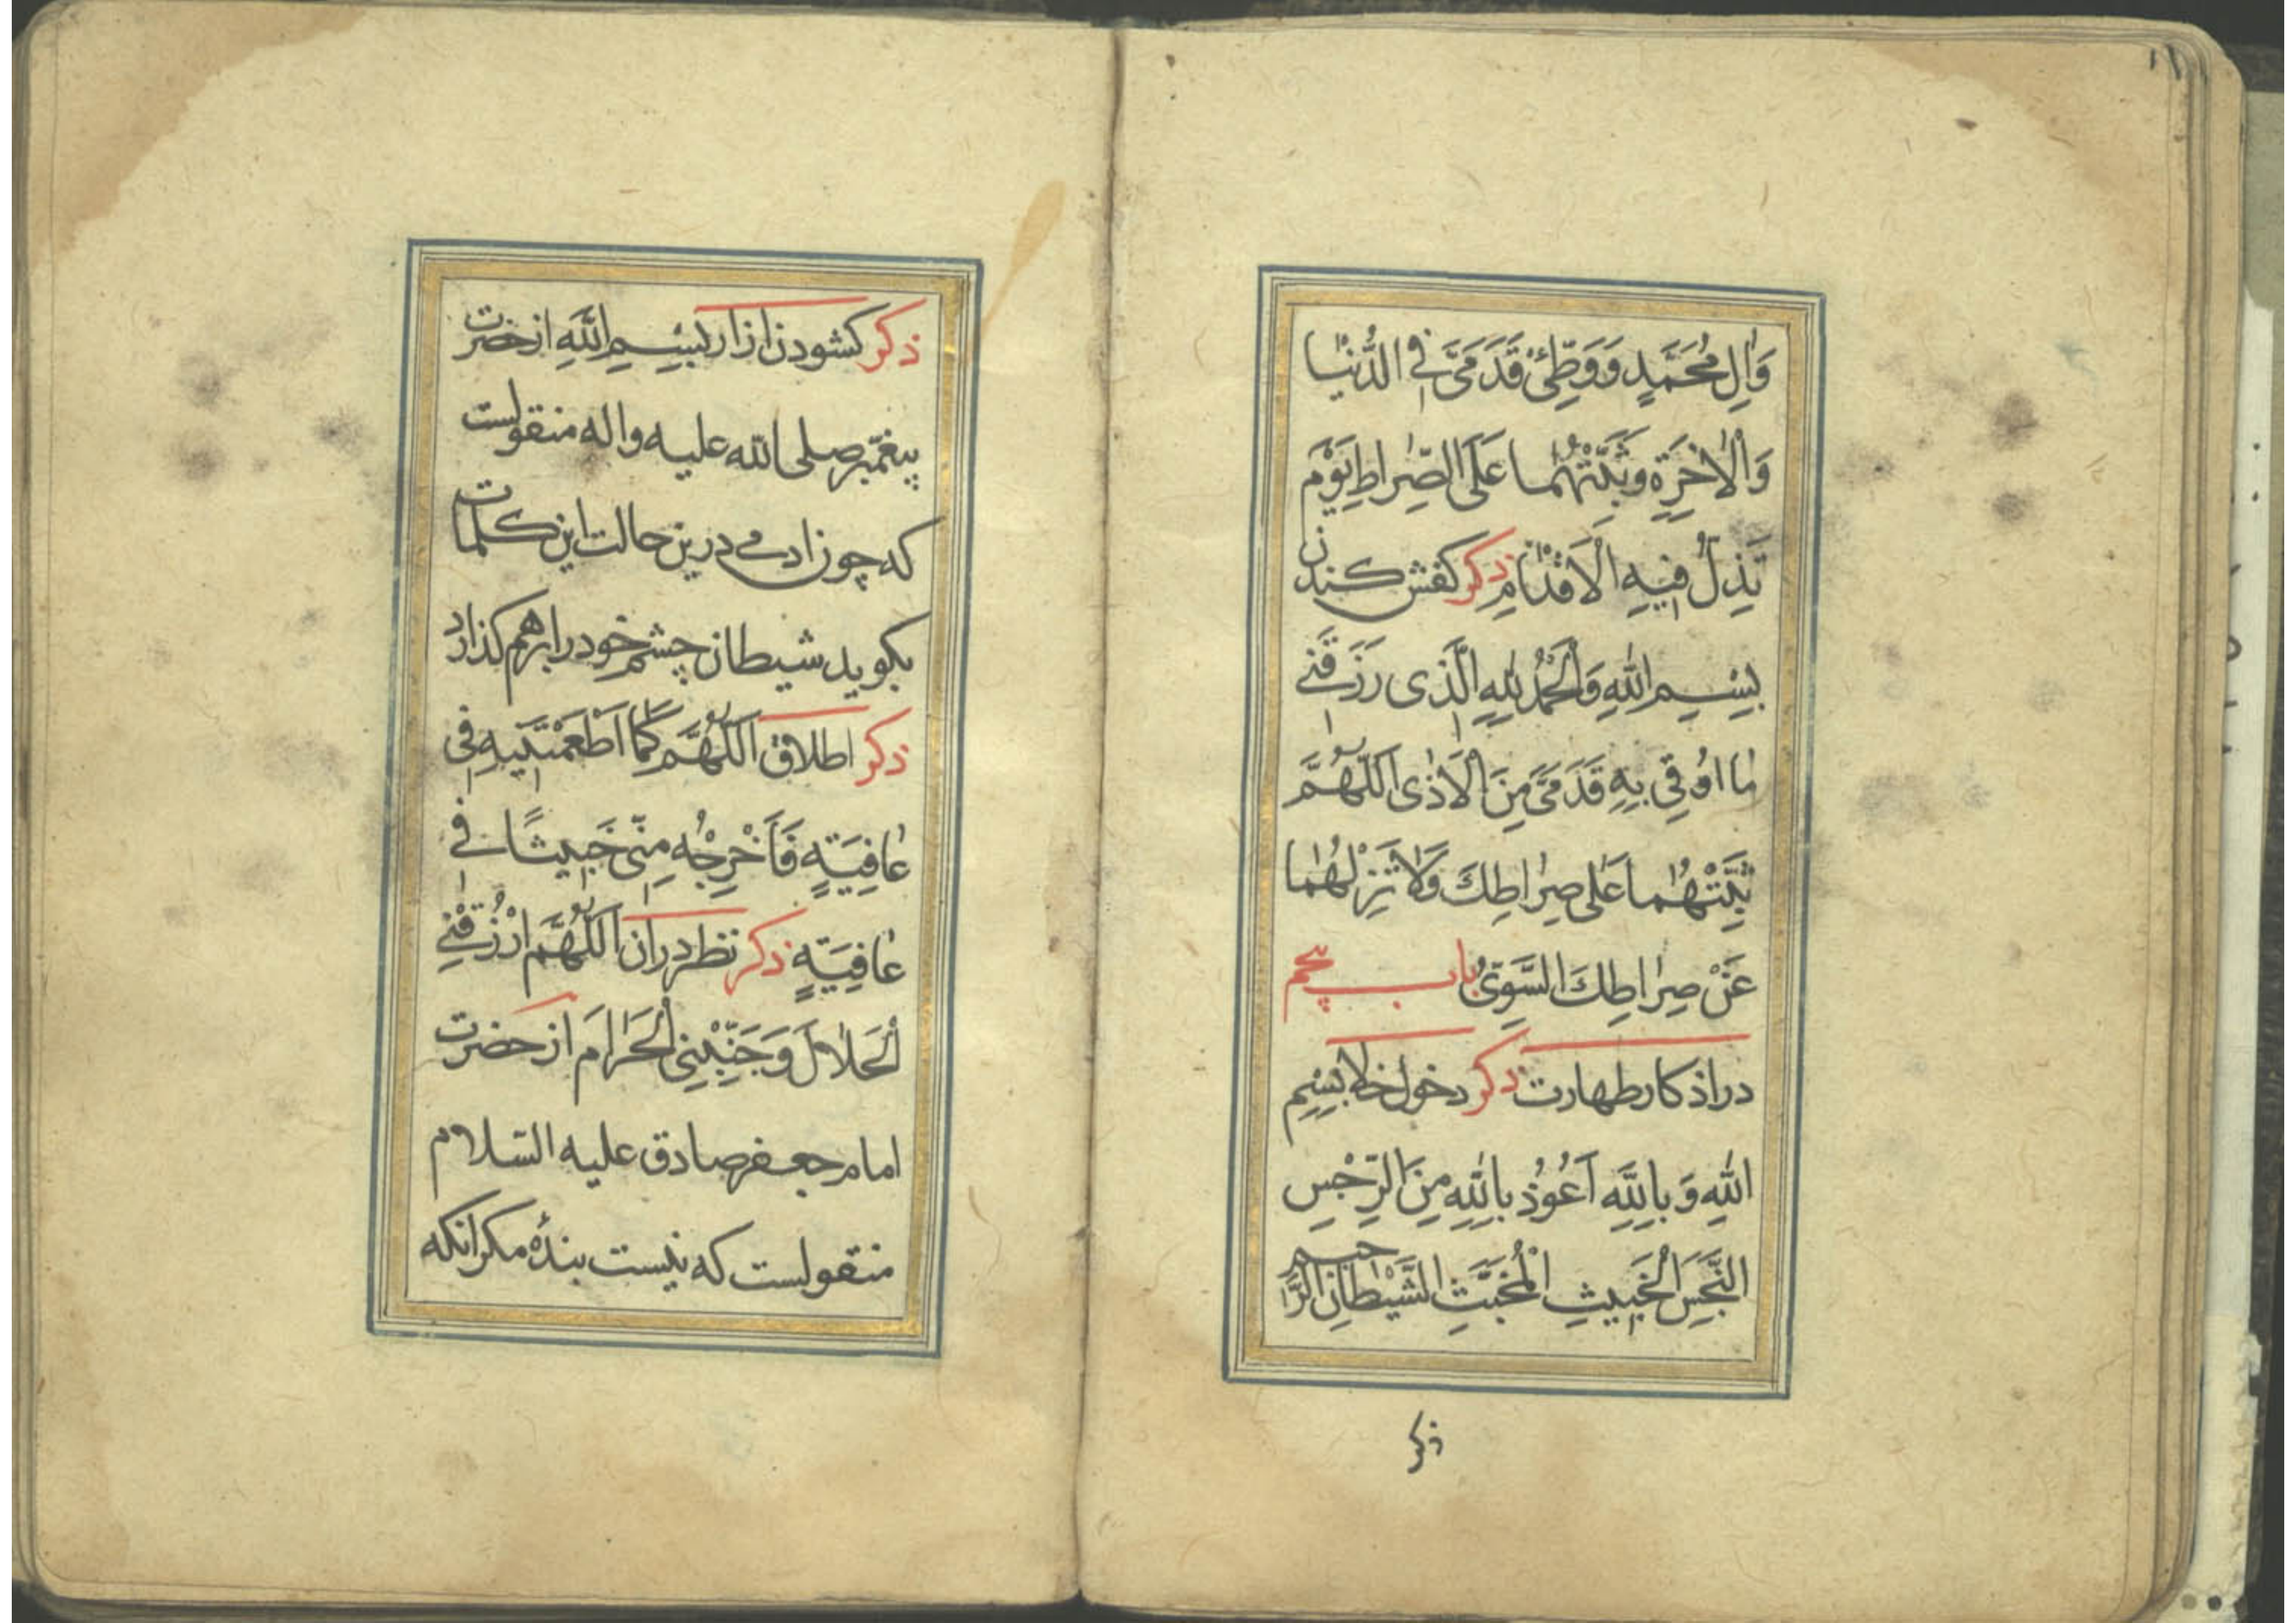 وَاٰلِ مُحَمَّدٍ وَوَطِّئْ قَدَمَىَّ فِى الدُّنْيٰا
وَالْاٰخِرَةِ وَثَبِّتْهُمٰا عَلَى الصِّرٰاطِ يَوْمَ
تَذِلُّ فِيهِ الْاَقْدٰامِ ذكر كفش كندن
بِسْمِ اللّٰهِ وَالْحَمْدُ لِلّٰهِ الَّذى رَزَقَنى
مٰا اُوقِى بِهِ قَدَمَىَّ مِنَ الْاَذٰى اَللّٰهُمَّ
ثَبِّتْهُمٰا عَلٰى صِرٰاطِكَ وَلٰا تَزِلْهُمٰا
عَنْ صِرٰاطِكَ السَّوِىُّ باب پنجم
در اذكار طهارت ذكر دخول خلا بِسْمِ
اللّٰهِ وَبِاللّٰهِ اَعُوذُ بِاللّٰهِ مِنَ الرِّجْسِ
النَّجِسِ الْخَبِيثِ الْمُخَبَّثِ الشَّيْطٰانِ الرَّجيم
ذكر
ذكر كشودن ازار بِسْمِ اللّٰهِ از حضرت
پيغمبر صلى اللّه عليه واله منقولست
كه چون ادمى درين حالت اين كلمات
بكويد شيطان چشم خود را برهم كذارد
ذكر اطلاق اَللّٰهُمَّ كَمٰا اَطْعَمْتَنِيهِ فِى
عٰافِيَةٍ فَاَخْرِجْهُ مِنّى خَبِيثًا فى
عٰافِيَةٍ ذكر نظر دران اَللّٰهُمَّ ارْزُقْنِى
الْحَلٰالَ وَجَنِّبْنِى الْحَرٰامَ از حضرت
امام جعفر صادق عليه السّلام
منقولست كه نيست بندهٔ مكر انكه